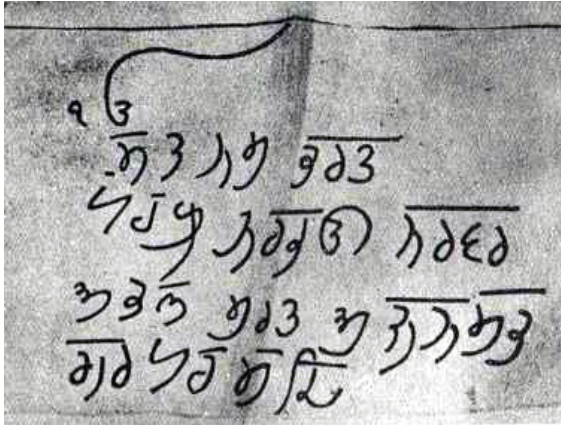 ੴ
ਸਤ ਨਮ ਕਰਤ
ਪਰਖ ਨਰਭਉ ਨਰਵਰ
ਅਕਲ ਮਰਤ ਅਜਨ ਸਭ
ਗਰ ਪਰਸਦਿ